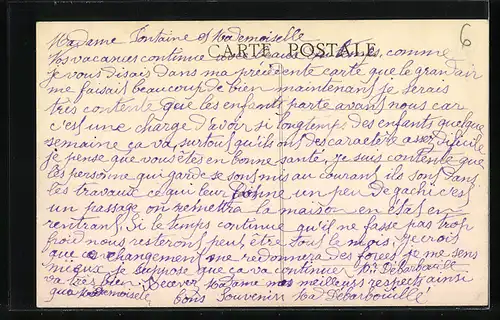 Madame Fontaine et Mademoiselle
CARTE POSTALE
6
Nos vacances continue avec beau temps, comme
je vous disais dans ma précédente carte que le grand air
me faisait beaucoup de bien maintenant je serais
très contente que les enfants parte avant nous car
c'est une charge d'avoir si longtemps des enfants quelque
semaine ça va, surtout qu'ils ont des caractère assez dificile
je pense que vous êtes en bonne santé, je suis contente que
les personne qui garde se sons mis au courant ils sons dans
les travaux ce qui leur donne un peu de gachi c'est
un passage on remettra la maison en état en
rentrant. Si le temps continue qu'il ne fasse pas trop
froid nous resterons peut être tout le mois, je crois
que ce changement me redonnera des forces je me sens
mieux je suppose que ça va continuer Mr Débarbouillé
va très bien. Recever Madame mes meilleurs respects ainsi
qua Mademoisele bons Souvenirs Md Débarbouillé